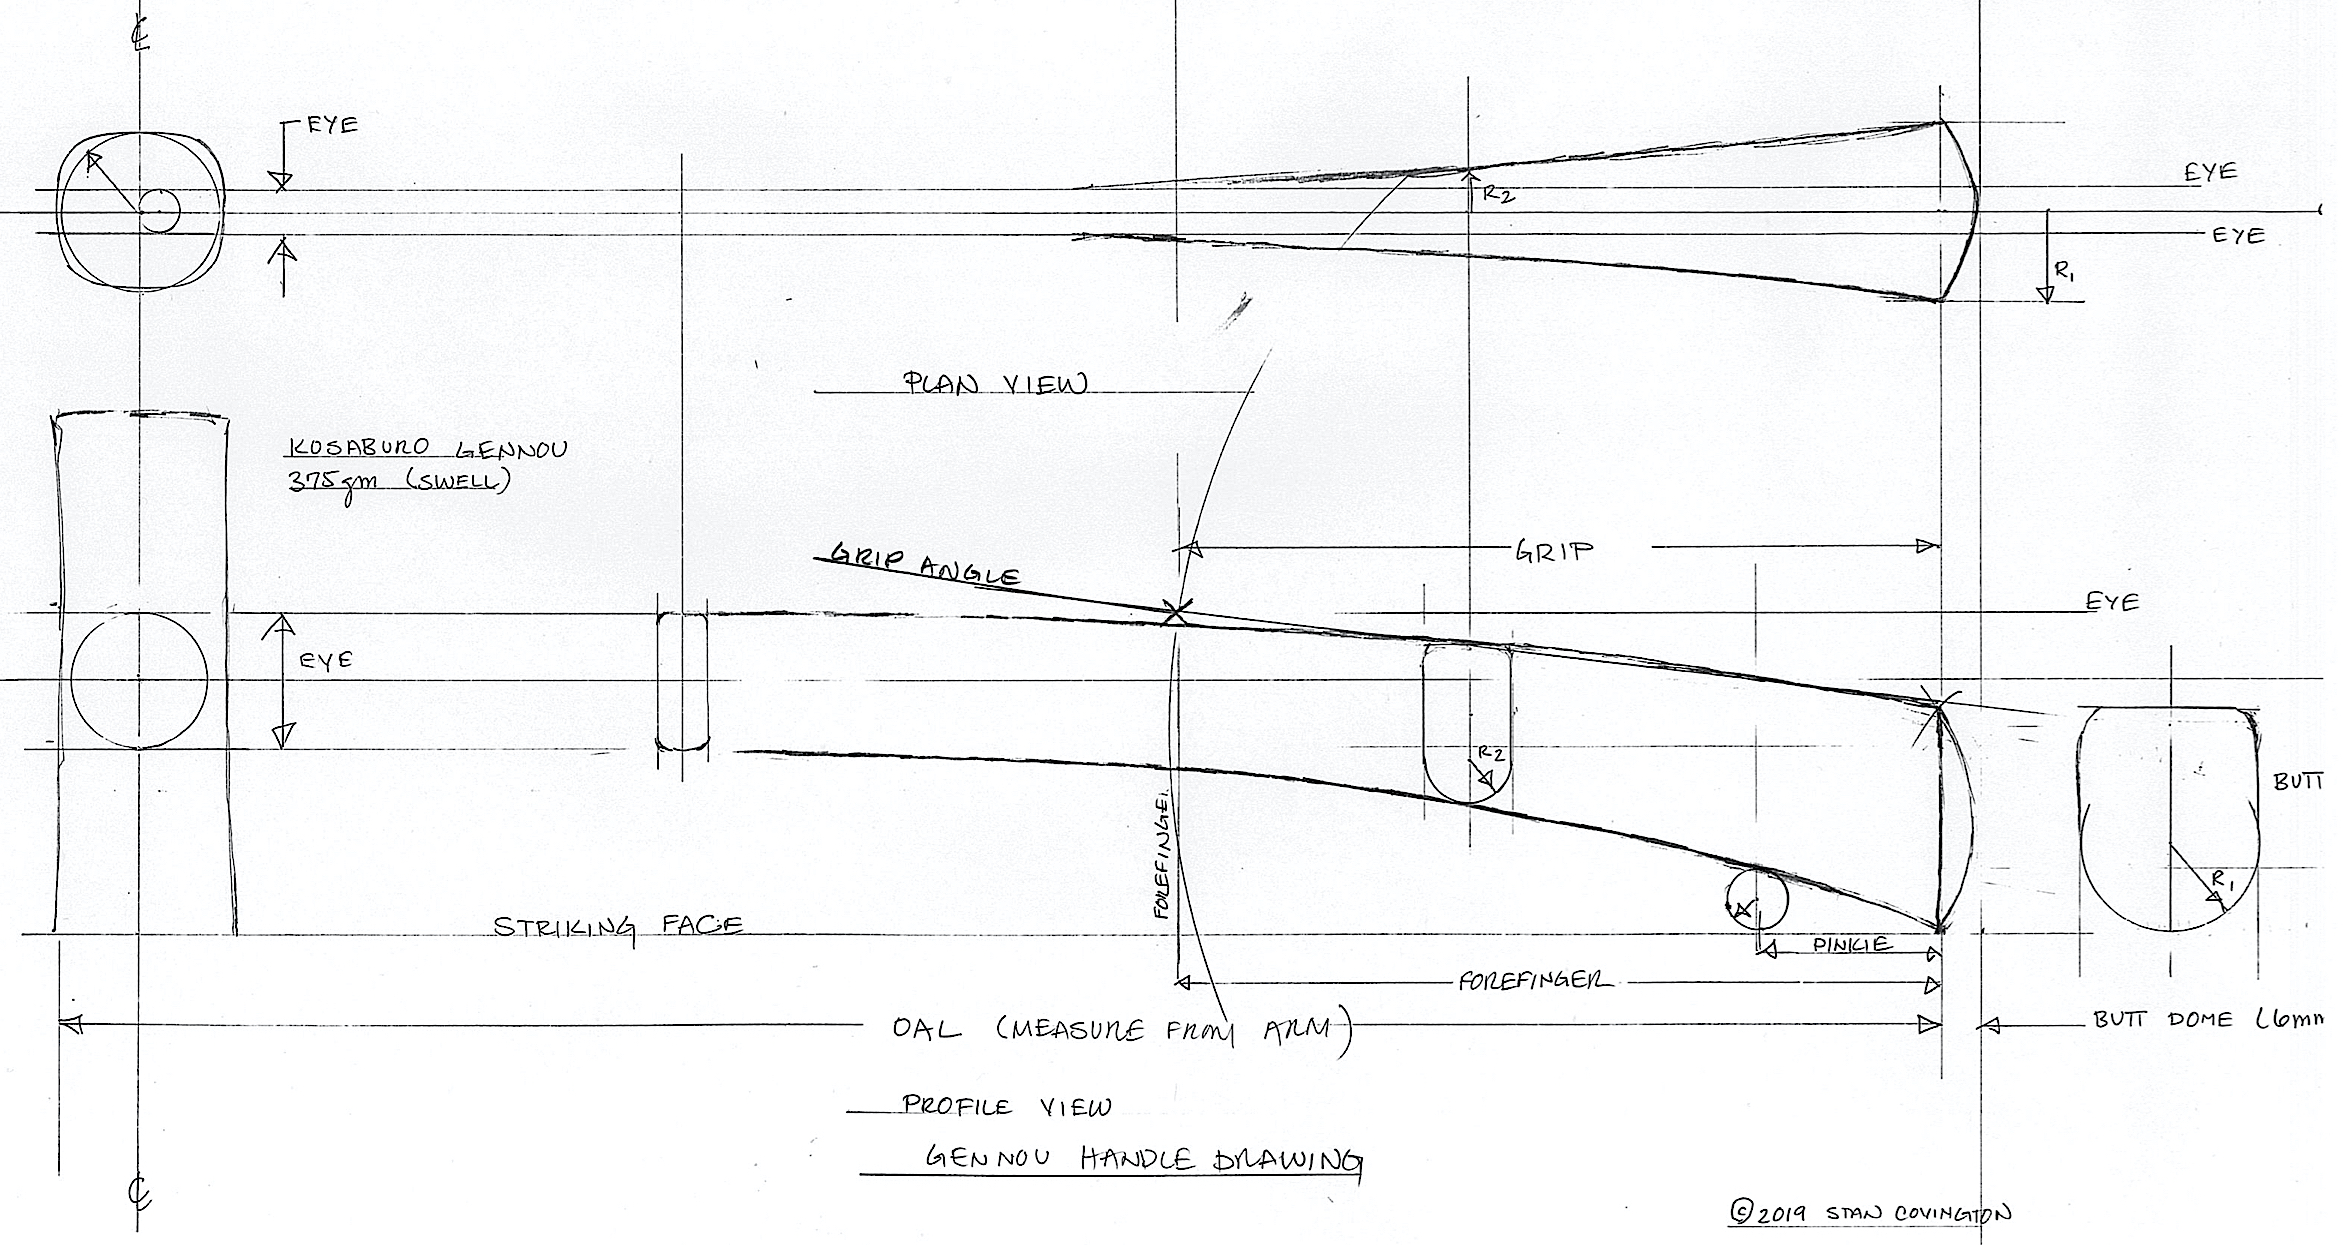 ℄
EYE
EYE
R2
EYE
R1
PLAN VIEW
KOSABURO GENNOU
375gm (SWELL)
GRIP ANGLE
GRIP
EYE
EYE
R2
BUTT
FOREFINGE
R1
STRIKING FACE
PINKIE
FOREFINGER
OAL (MEASURE FROM ARM)
BUTT DOME (6mm
PROFILE VIEW
GENNOU HANDLE DRAWING
℄
©2019 STAN COVINGTON